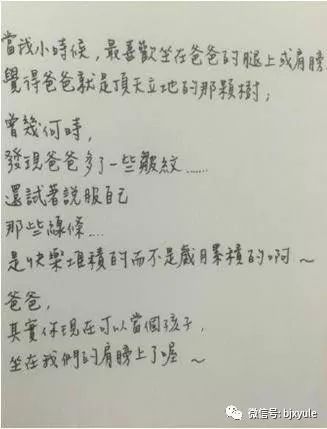 當我小時候，最喜歡坐在爸爸的腿上或肩膀
覺得爸爸就是頂天立地的那顆樹；
曾幾何時，
發現爸爸多了一些皺紋……
還試著說服自己
那些線條…．
是快樂堆積的而不是歲月累積的啊～
爸爸，
其實你現在可以當個孩子，
坐在我們的肩膀上了喔～
微信号: bjxyule